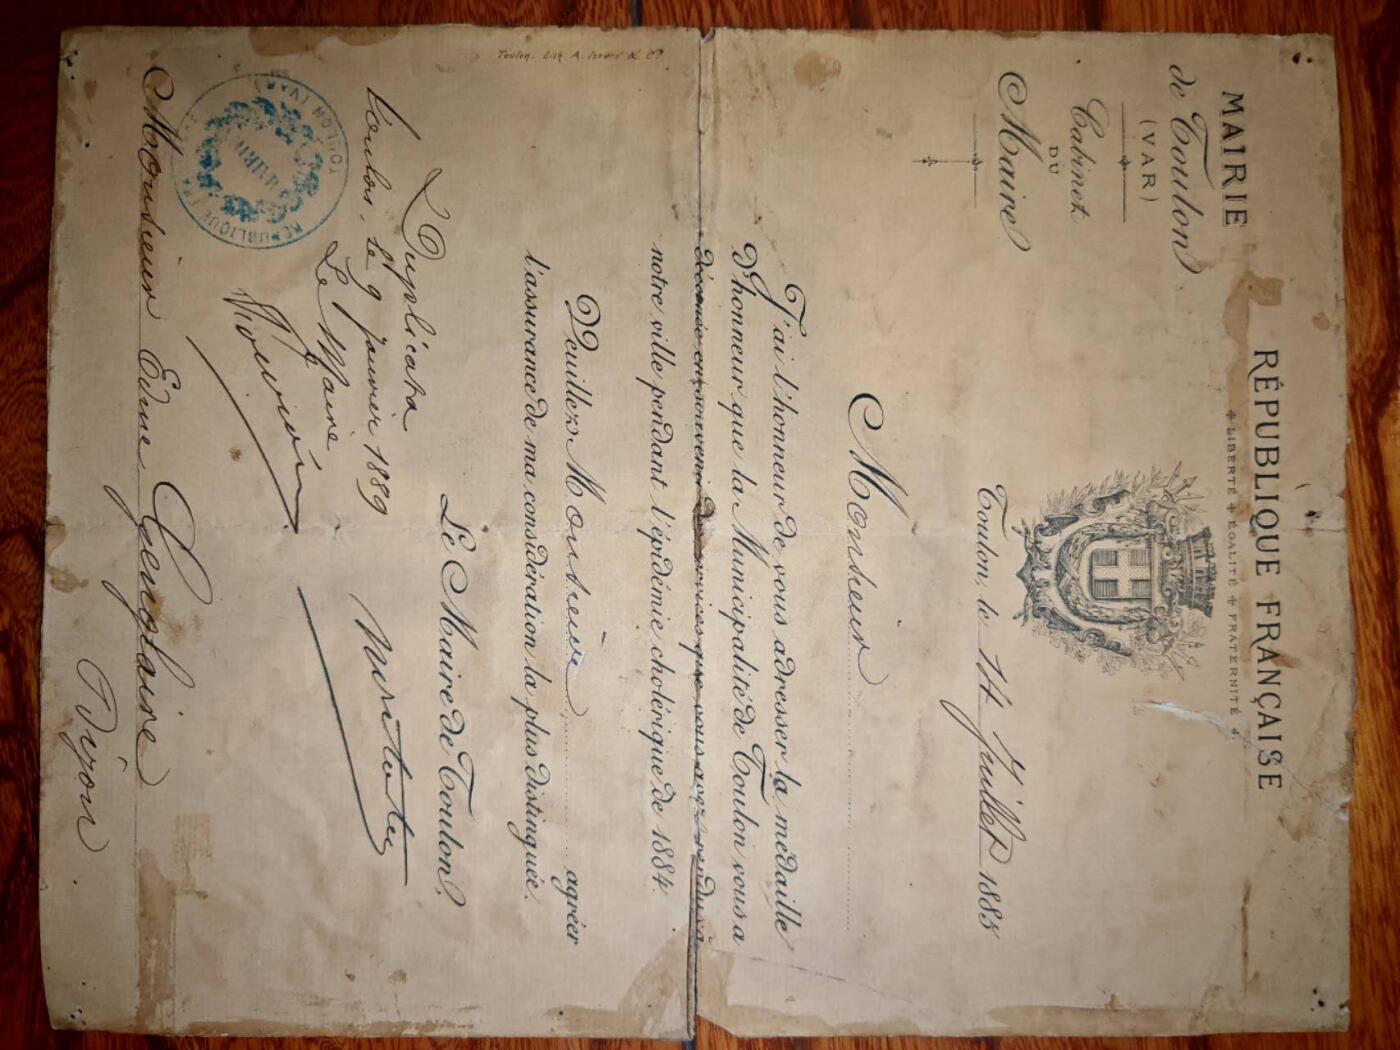 RÉPUBLIQUE FRANÇAISE
LIBERTÉ ÉGALITÉ FRATERNITÉ
MAIRIE
de Toulon
(VAR)
Cabinet
DU
Maire
Toulon, le 14 Juillet 1885
Monsieur
J'ai l'honneur de vous adresser la médaille
d'honneur que la Municipalité de Toulon vous a
décernée en souvenir des services que vous avez rendus à
notre ville pendant l'épidémie cholérique de 1884.
Veuillez Monsieur agréer
l'assurance de ma considération la plus distinguée.
Le Maire de Toulon,
Duplicata
Toulon, le 9 Janvier 1889
Le Maire
TOULON (VAR)
MAIRIE
RÉPUBLIQUE FRANÇAISE
Monsieur Edme Genglaire
Dijon
Toulon. Lith. A. Isnard & Cie